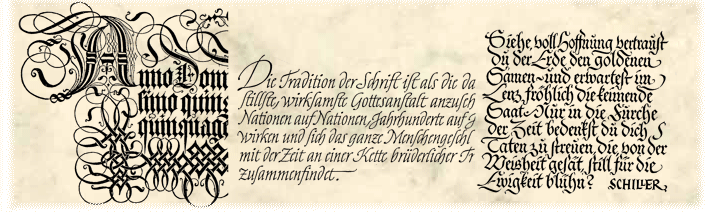 Anno Dom
simo quin
quinquag
Die Tradition der Schrift ist als die da
stillste, wirksamste Gottsanstalt anzuseh
Nationen auf Nationen, Jahrhunderte auf J
wirken und sich das ganze Menschengeschl
mit der Zeit an einer Kette brüderlicher Tr
zusammenfindet.
Siehe, voll Hoffnung vertraust
du der Erde den goldenen
Samen und erwartest im
Lenz fröhlich die keimende
Saat. Nur in die Furche
der Zeit bedenkst du dich
Taten zu streuen, die von der
Weisheit gesät, still für die
Ewigkeit blühn? SCHILLER